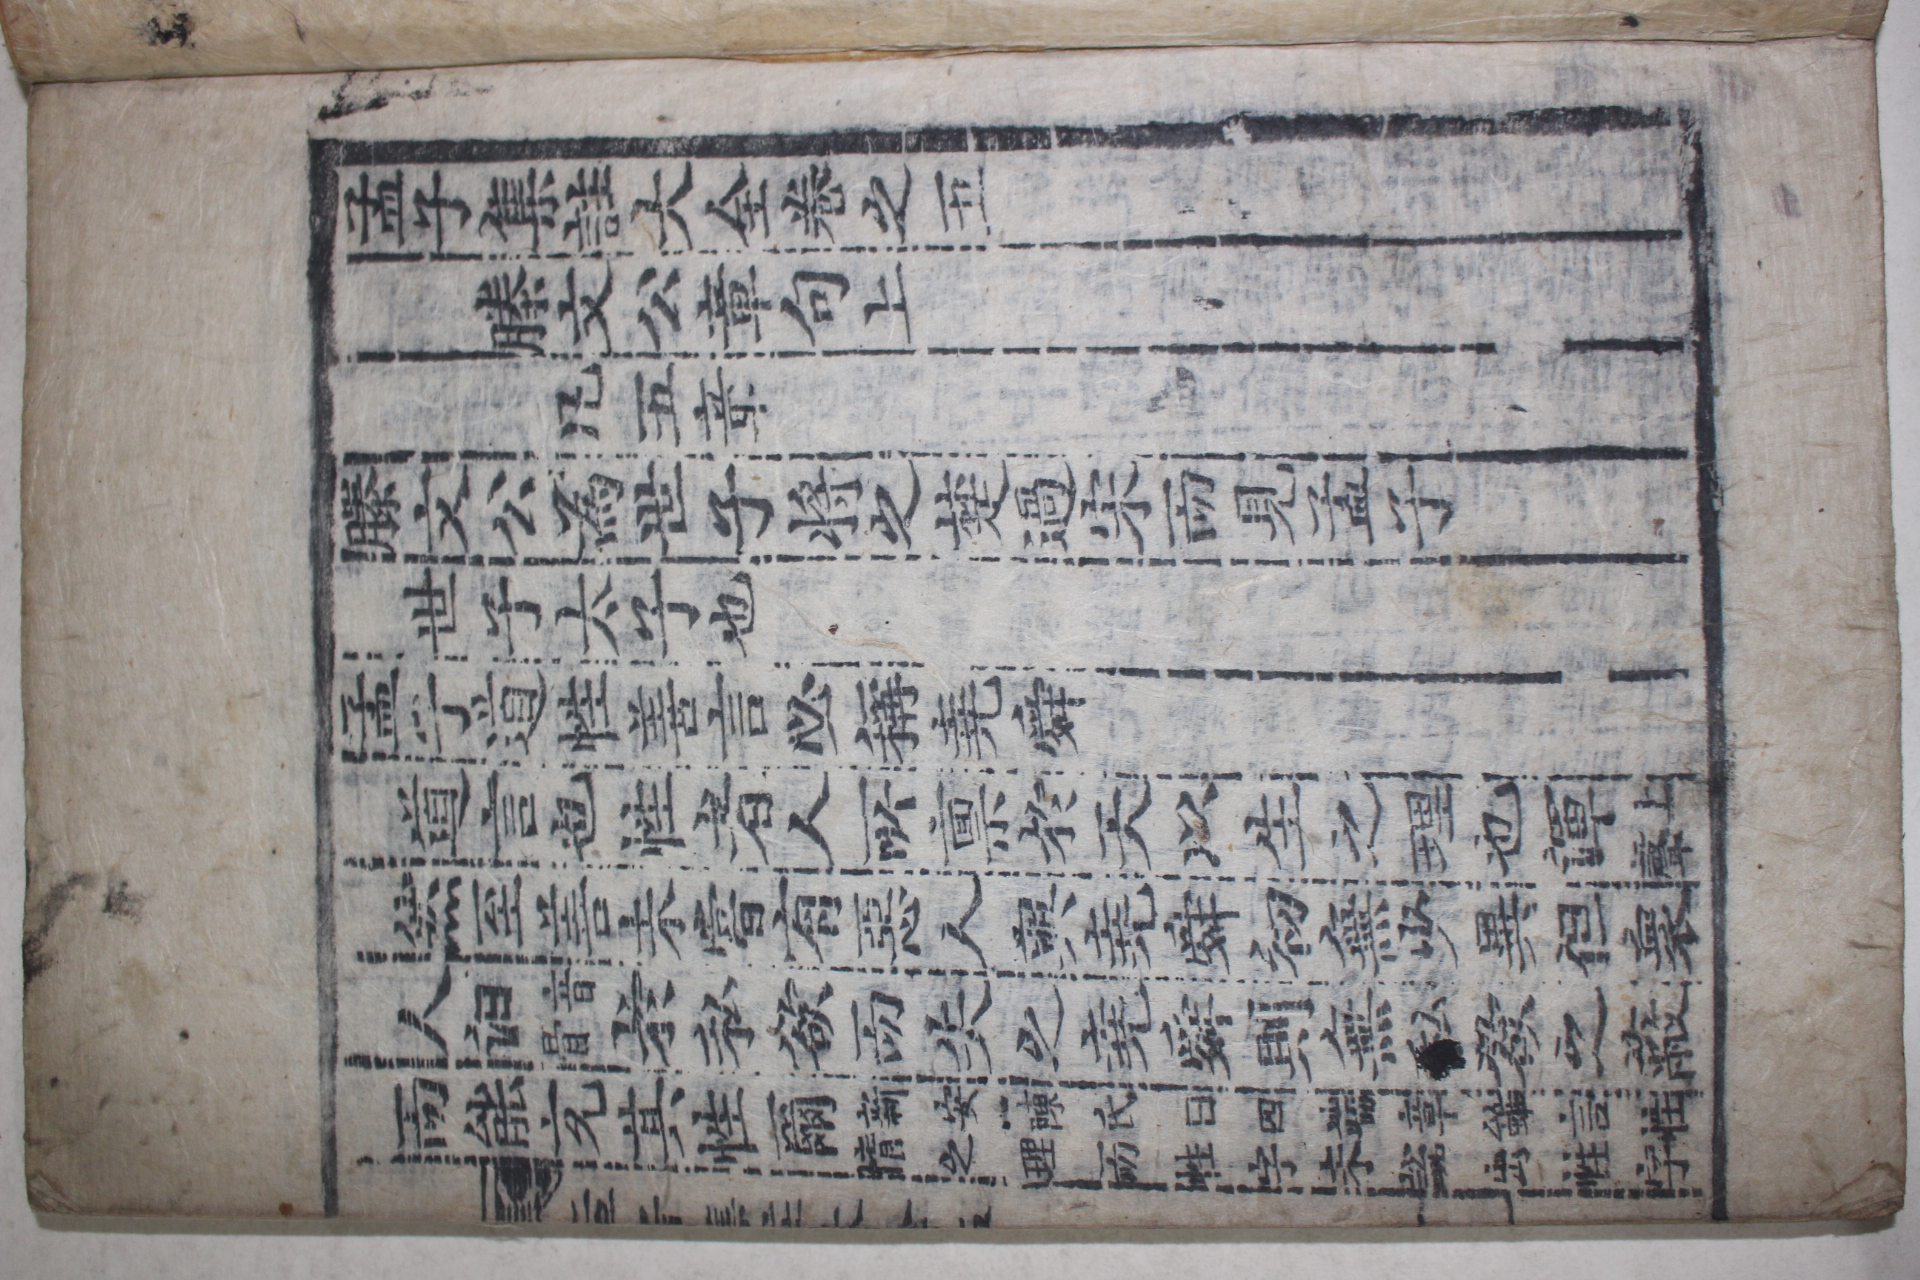 孟子集註大全卷之五
滕文公章句上
凡五章
滕文公為世子將之楚過宋而見孟子
世子太子也
孟子道性善言必稱堯舜
道言也性者人所禀於天以生之理也渾上聲
然至善未嘗有惡人與堯舜初無少異但衆
人汩音骨於私欲而失之堯舜則無私欲之蔽
而能充其性爾新安陳氏曰四端章雖言性
情之理而性字未說出性字